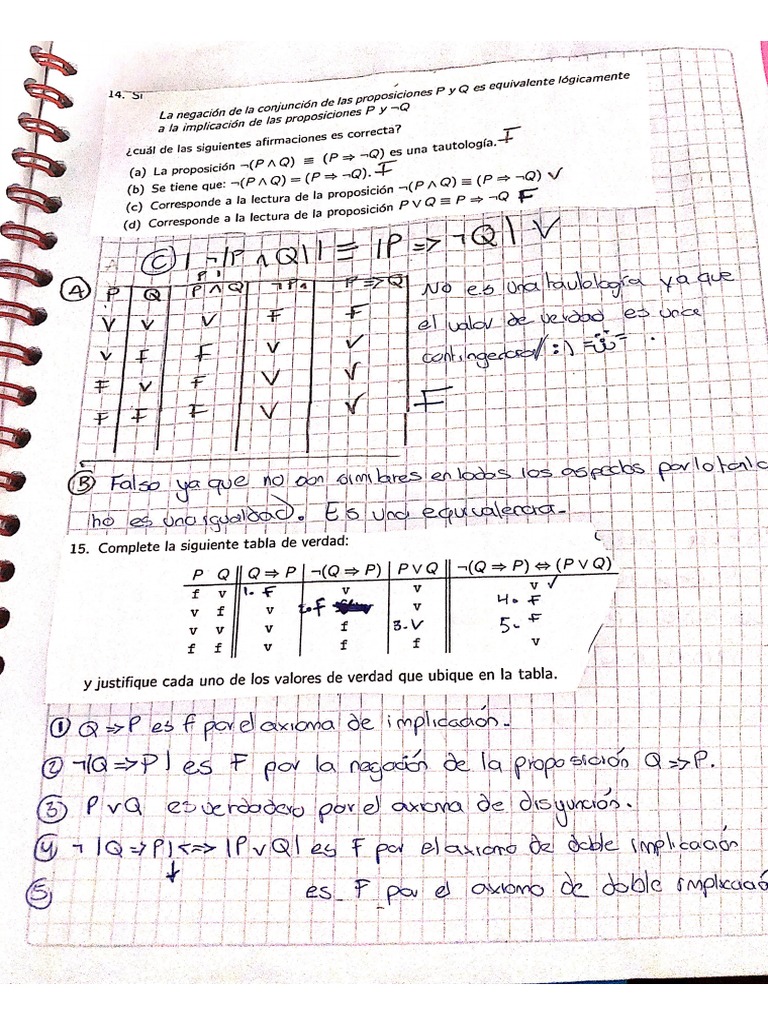 14. Si
La negación de la conjunción de las proposiciones P y Q es equivalente lógicamente
a la implicación de las proposiciones P y ¬Q
¿cuál de las siguientes afirmaciones es correcta?
(a) La proposición ¬(P ∧ Q) ≡ (P ⇒ ¬Q) es una tautología. F
(b) Se tiene que: ¬(P ∧ Q) = (P ⇒ ¬Q). F
(c) Corresponde a la lectura de la proposición ¬(P ∧ Q) ≡ (P ⇒ ¬Q) ✓
(d) Corresponde a la lectura de la proposición P ∨ Q ≡ P ⇒ ¬Q F
C |¬|P ∧ Q|| ≡ |P => ¬Q| V
A P Q P ∧ Q P => Q
V V V F F
V F F V V
F V F V V
F F F V V
No es una taulología ya que
el valor de verdad es unce
:)
F
B Falso ya que no son similares en todos los aspectos por lo tanto
no es una igualdad. Es una equivalencia.
15. Complete la siguiente tabla de verdad:
P Q Q ⇒ P ¬(Q ⇒ P) P ∨ Q ¬(Q ⇒ P) ⇔ (P ∨ Q)
f v 1. F v v v ✓
v f v 2. F v 4. F
v v v f 3. V 5. F
f f v f f v
y justifique cada uno de los valores de verdad que ubique en la tabla.
1 Q => P es f por el axioma de implicación.
2 ¬|Q => P| es F por la negación de la proposición Q => P.
3 P v Q es verdadero por el axioma de disyunción.
4 ¬|Q => P| <=> |P v Q| es F por el axiomo de doble implicación
5 es F por el axiomo de doble implicació